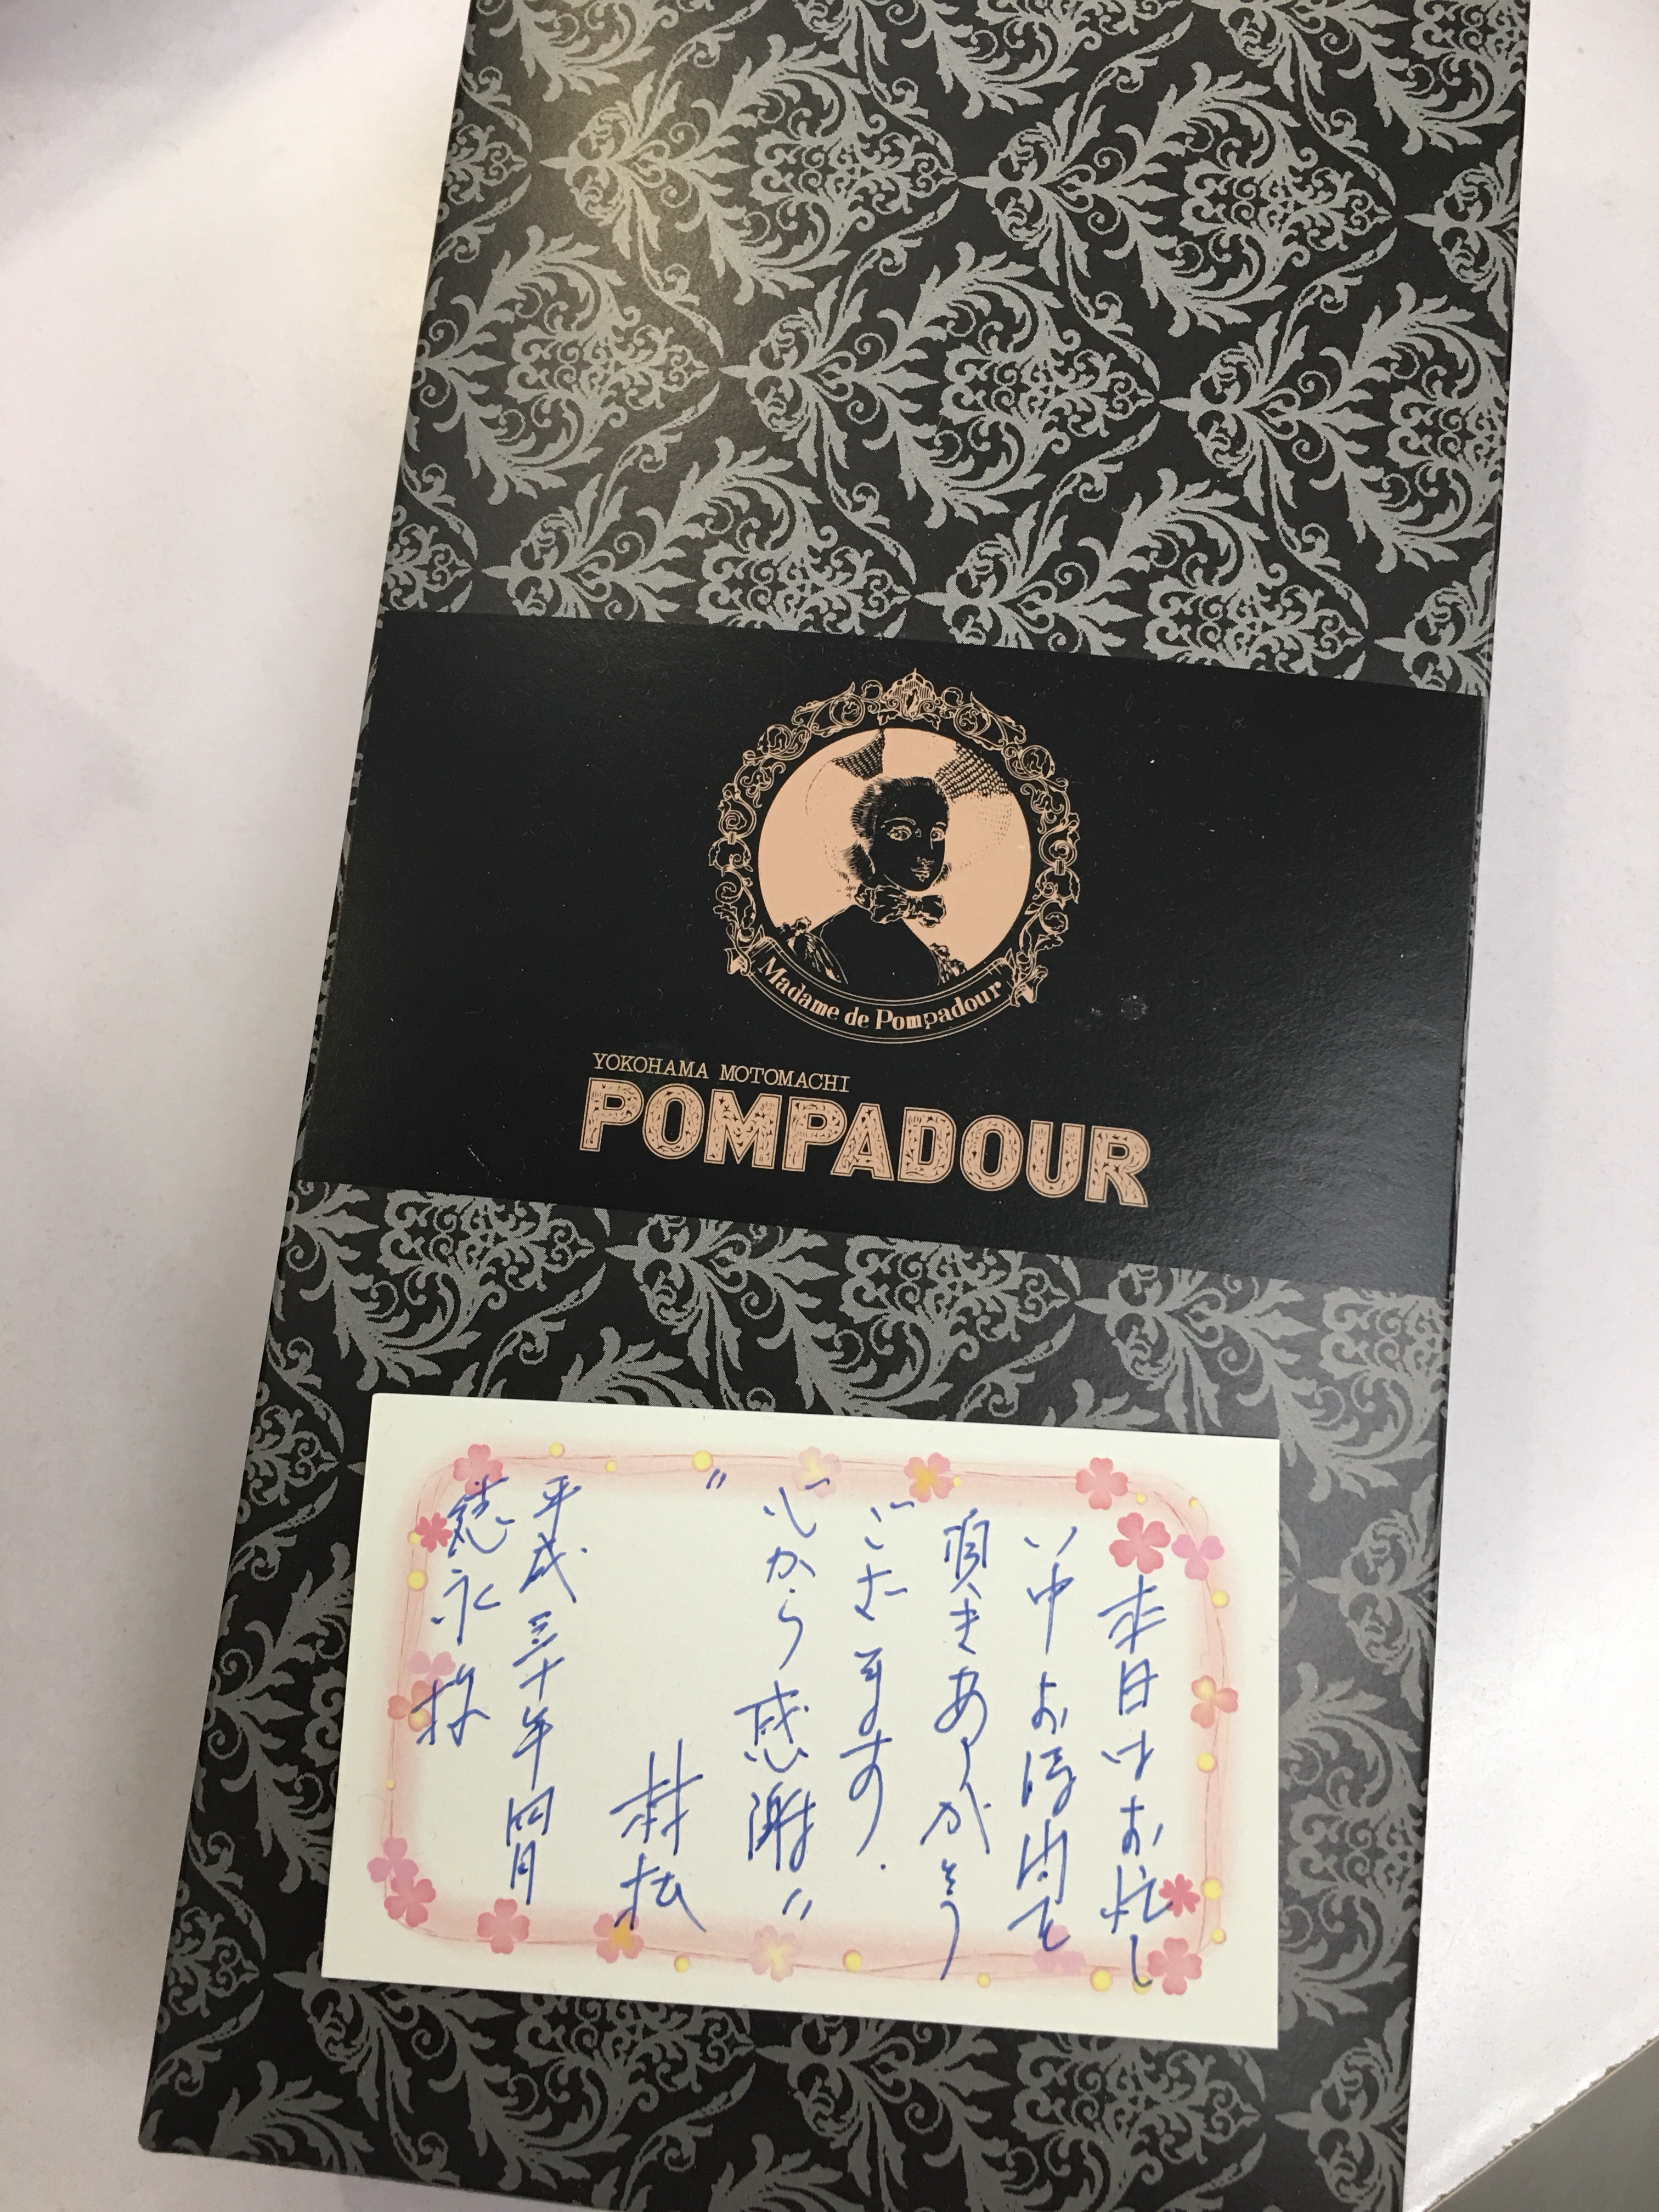 Madame de Pompadour
YOKOHAMA MOTOMACHI
POMPADOUR
本日はお忙し
い中お時間を
頂きありがとう
ございます.
"心から感謝"
平成三十年四月
徳永様